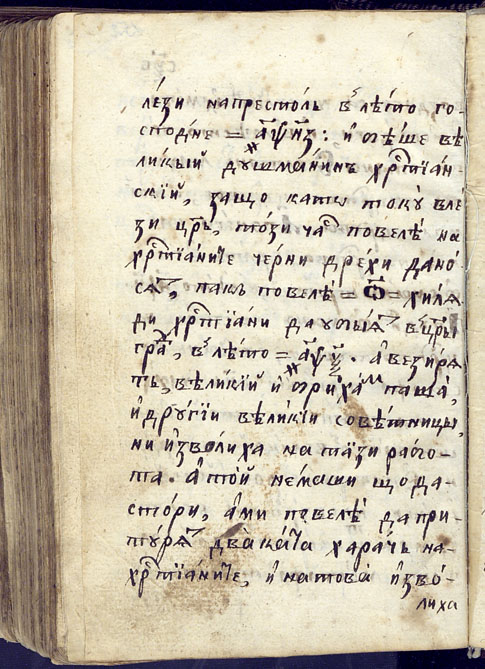 лѣзи напрестолъ в̾лѣто го-
сподне = а҃ѱн҃з: и беше ве
ликый душманинъ хр҃тїан-
скїй, защо като токꙋ влѣ
зи цр҃ь, този ча҃ повелѣ на
хр҃тїаните черни дрехи дано
сѧ҃, пакъ повелѣ = ѿ = хилѧ
ди хр҃тїани да
гра҃, в̾лѣто = а҃ѱ҃ . а везирѧ
тъ, великїй и паша,
и дрꙋгїи великїи совѣтницы,
ни изволиха на тази рабо-
та. а той немаши що да-
стори, ами повелѣ да при
тꙋрѧ҃ два ката харачь на-
хр҃тїаните, и на това изво-
лиха